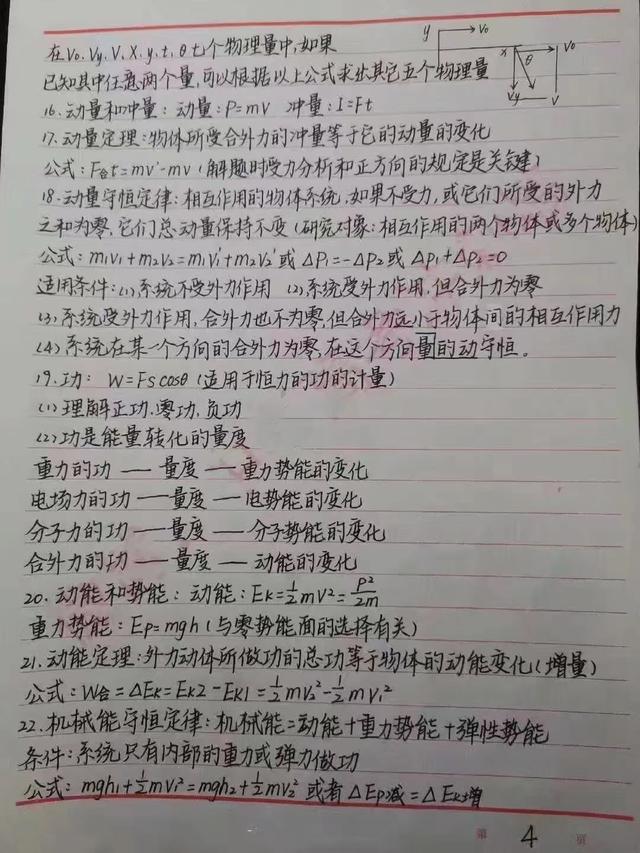 在V0.Vy.V.X.y.t.θ七个物理量中,如果
y V0
x V0
θ
Vy V
已知其中任意两个量,可以根据以上公式求出其它五个物理量
16.动量和冲量:动量:P=mV 冲量:I=Ft
17.动量定理:物体所受合外力的冲量等于它的动量的变化
公式:F合t=mv'-mv(解题时受力分析和正方向的规定是关键)
18.动量守恒定律:相互作用的物体系统,如果不受力,或它们所受的外力
之和为零,它们总动量保持不变(研究对象:相互作用的两个物体或多个物体)
公式:m1V1+m2V2=m1V1'+m2V2'或ΔP1=-ΔP2或ΔP1+ΔP2=0
适用条件:(1)系统不受外力作用 (2)系统受外力作用,但合外力为零
(3)系统受外力作用,合外力也不为零,但合外力远小于物体间的相互作用力
(4)系统在某一个方向的合外力为零,在这个方向量的动守恒。
19.功: W=Fs cosθ(适用于恒力的功的计量)
(1)理解正功.零功.负功
(2)功是能量转化的量度
重力的功 — 量度 — 重力势能的变化
电场力的功 — 量度 — 电势能的变化
分子力的功 — 量度 — 分子势能的变化
合外力的功 — 量度 — 动能的变化
20.动能和势能:动能:Ek=½mV²=P²/2m
重力势能:Ep=mgh(与零势能面的选择有关)
21.动能定理:外力动体所做功的总功等于物体的动能变化(增量)
公式:W合=ΔEk=Ek2-Ek1=½mV2²-½mV1²
22.机械能守恒定律:机械能=动能+重力势能+弹性势能
条件:系统只有内部的重力或弹力做功
公式:mgh1+½mV1²=mgh2+½mV2² 或者ΔEp减=ΔEk增
第 4 页